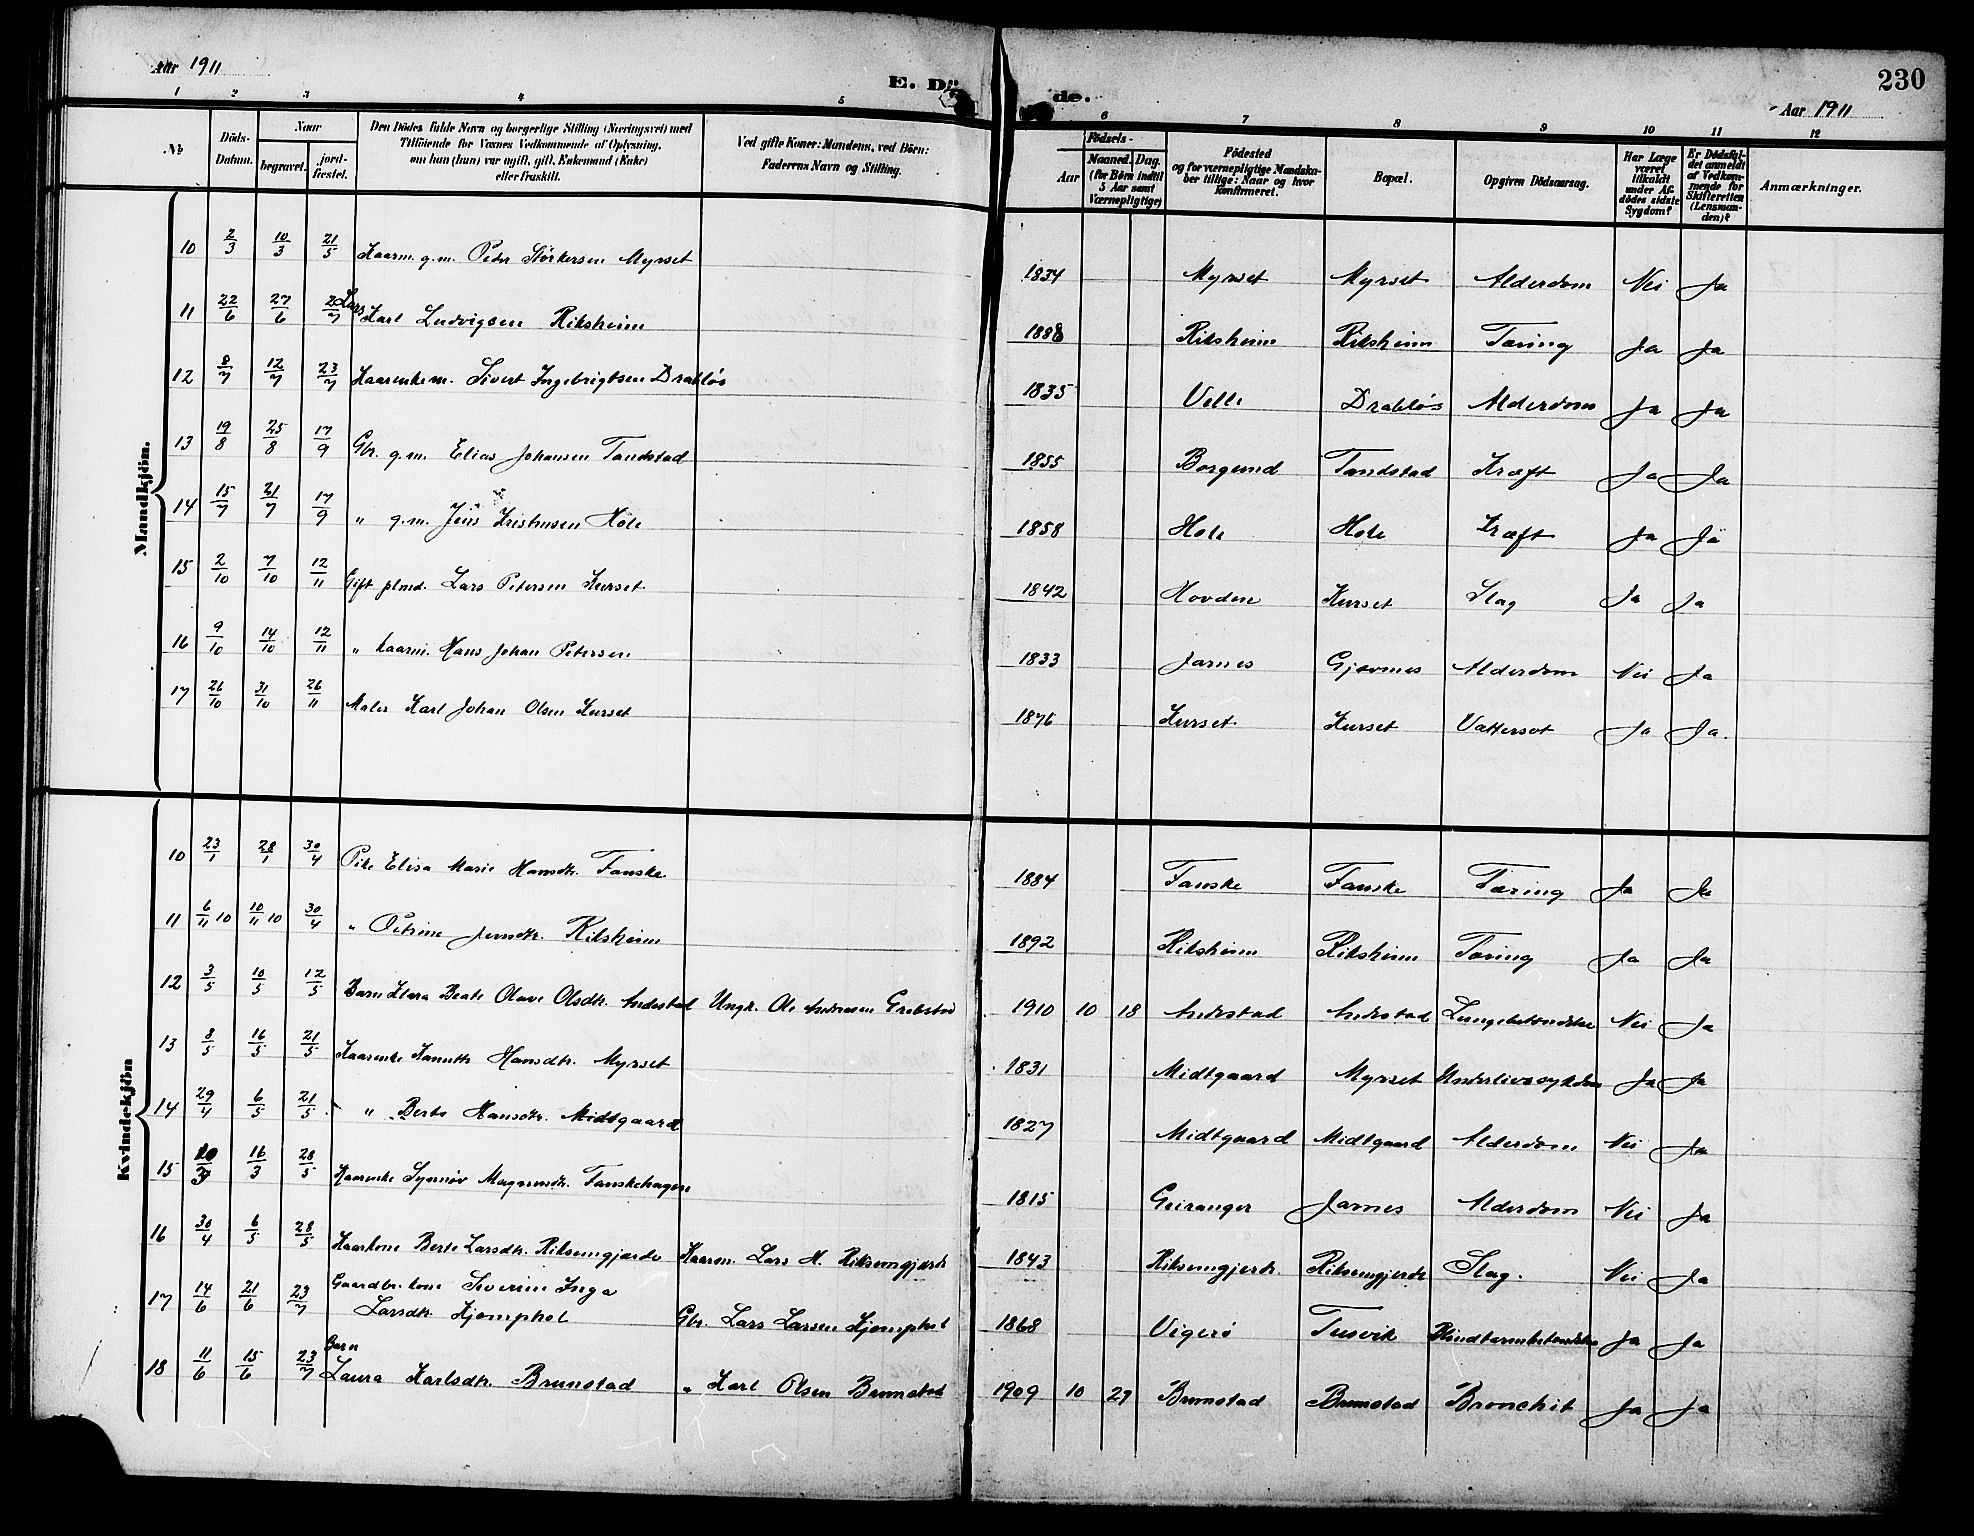 Aar 1911
E. Dö de.
230
Aar 1911
1 2 3 4 5 6 7 8 9 10 11 12
No
Döds-
Datum.
Naar
begravet.
jord-
fæstet.
Den Dödes fulde Navn og borgerlige Stilling (Næringsvei) med
Tilföiende for Voxnes Vedkommende af Oplysning,
om han (hun) var ugift, gift, Enkemand (Enke)
eller fraskilt.
Ved gifte Koner: Mandens, ved Börn:
Faderens Navn og Stilling.
Födsels-
Aar
Maaned. Dag.
(for Börn indtil
5 Aar samt
Værnepligtige)
Födested
og for værnepligtige Mandska-
ber tillige: Naar og hvor
konfirmeret.
Bopæl.
Opgiven Dödsaarsag.
Har Læge
været
tilkaldt
under Af-
dödes sidste
Sygdom?
Er Dödsfal-
det anmeldt
af Vedkom-
mende for
Skifteretten
(Lensman-
den)?
Anmærkninger.
Mandkjön.
10 2/3 10/3 21/5 Kaarm. g.m. Peder Størkersen Myrset 1834 Myrset Myrset Alderdom Nei Ja
11 22/6 27/6 2/7 Lars Karl Ludvigsen Riksheim 1888 Riksheim Riksheim Tæring Ja Ja
12 8/7 12/7 23/7 Kaarenkem. Sivert Ingebrigtsen Drabløs 1835 Velle Drabløs Alderdom Ja Ja
13 19/8 25/8 17/9 Gbr. g.m. Elias Johansen Tandstad 1855 Borgund Tandstad Kræft Ja Ja
14 15/7 21/7 17/9 " g.m. Jens Kristensen Hole 1858 Hole Hole Kræft Ja Ja
15 2/10 7/10 12/11 Gift plmd. Lars Petersen Kurset 1842 Hovden Kurset Slag Ja Ja
16 9/10 14/10 12/11 " kaarm. Hans Johan Petersen 1833 Jarnes Gjævnes Alderdom Nei Ja
17 26/10 31/10 26/11 Maler Karl Johan Olsen Kurset 1876 Kurset Kurset Vattersot Ja Ja.
Kvindekjön
10 23/1 28/1 30/4 Pike Elisa Marie Hansdtr. Fauske 1884 Fauske Fauske Tæring Ja Ja
11 6/11 10 10/11 10 30/4 " Petrine Jensdtr. Riksheim 1892 Riksheim Riksheim Tæring Ja Ja
12 3/5 10/5 12/5 Barn Klara Beate Olave Olsdtr. Andestad Ungk. Ole Andreasen Grebstad 1910 10 18 Andestad Andestad Lungebetændelse Nei Ja
13 8/5 16/5 21/5 Kaarenke Hansdtr. Myrset 1831 Midtgaard Myrset Underlivssykdom Ja Ja
14 29/4 6/5 21/5 " Berte Hansdtr. Midtgaard 1827 Midtgaard Midtgaard Alderdom Nei Ja
15 10/3 16/3 28/5 Kaarenke Synnøv Magnusdtr. Fauskehagen 1815 Geiranger Jarnes Alderdom Nei Ja
16 30/4 6/5 28/5 Kaarkone Berte Larsdtr. Riksemgjærde Kaarm. Lars H. Riksemgjærde 1843 Riksemgjerde. Riksemgjerde Slag. Nei Ja
17 14/6 21/6 23/7 Gaardbr. kone Severine Inga
Larsdtr. Kjemphol Gbr. Lars Larsen Kjemphol 1868 Vigerø Tusvik Blindtarmbetændelse Ja Ja
Barn
18 11/6 15/6 23/7 Laura Karlsdtr. Brunstad " Karl Olsen Brunstad 1909 10 27 Brunstad Brunstad Bronchit Ja Ja